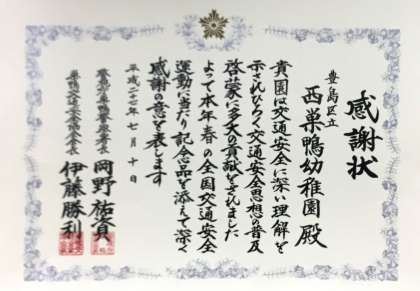 感謝状
豊島区立
西巣鴨幼稚園 殿
貴園は交通安全に深い理解を
示されひろく交通安全思想の普及
啓蒙に多大の貢献をされました
よって本年春の全国交通安全
運動に当たり記念品を添えて深く
感謝の意を表します
平成二十七年七月十日
岡野祐資
伊藤勝利